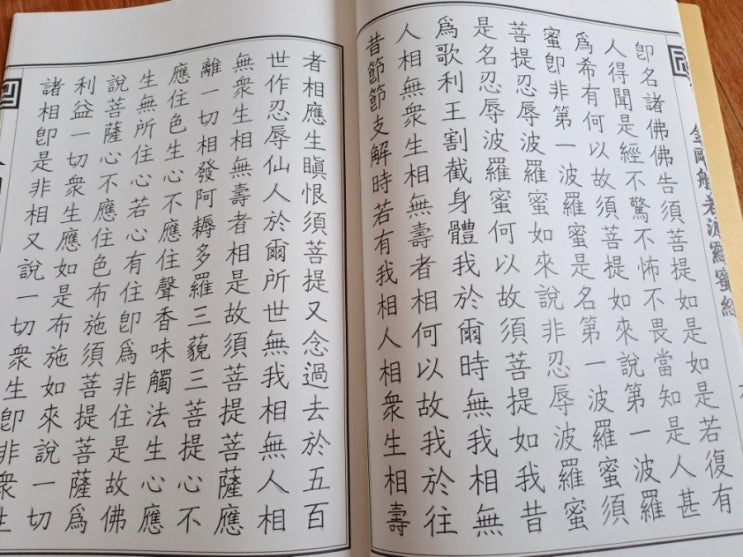 金剛般若波羅蜜經
卽名諸佛佛告須菩提如是如是若復有
人得聞是經不驚不怖不畏當知是人甚
爲希有何以故須菩提如來說第一波羅
蜜卽非第一波羅蜜是名第一波羅蜜須
菩提忍辱波羅蜜如來說非忍辱波羅蜜
是名忍辱波羅蜜何以故須菩提如我昔
爲歌利王割截身體我於爾時無我相無
人相無衆生相無壽者相何以故我於往
昔節節支解時若有我相人相衆生相壽
者相應生瞋恨須菩提又念過去於五百
世作忍辱仙人於爾所世無我相無人相
無衆生相無壽者相是故須菩提菩薩應
離一切相發阿耨多羅三藐三菩提心不
應住色生心不應住聲香味觸法生心應
生無所住心若心有住卽爲非住是故佛
說菩薩心不應住色布施須菩提菩薩爲
利益一切衆生應如是布施如來說一切
諸相卽是非相又說一切衆生卽非衆生